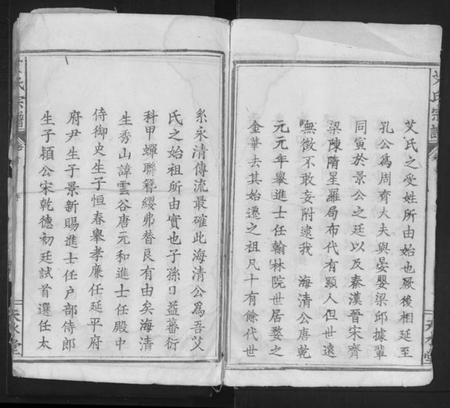 艾氏宗譜
艾氏之受姓所由始也厥後相延至
孔公爲周齊大夫與晏嬰梁邱據軰
同寅於景公之廷以及秦漢晉宋齊
梁陳隋星羅局布代有顯人但世遠
無徵不敢妄附逮我 海清公唐乾
元元年舉進士任翰林院世居婺之
金華去其始遷之祖凡十有餘代世
天水堂
系永清傳流最確此海清公爲吾艾
氏之始祖所由實也子孫日益蕃衍
科甲蟬聯簪纓弗替良有由矣海清
生秀山諱雲谷唐元和進士任殿中
侍御史生子恒春舉孝廉任延平府
府尹生子景新賜進士任户部侍郎
生子穎公宋乾德初廷試首選任太
氏宗譜
天水堂